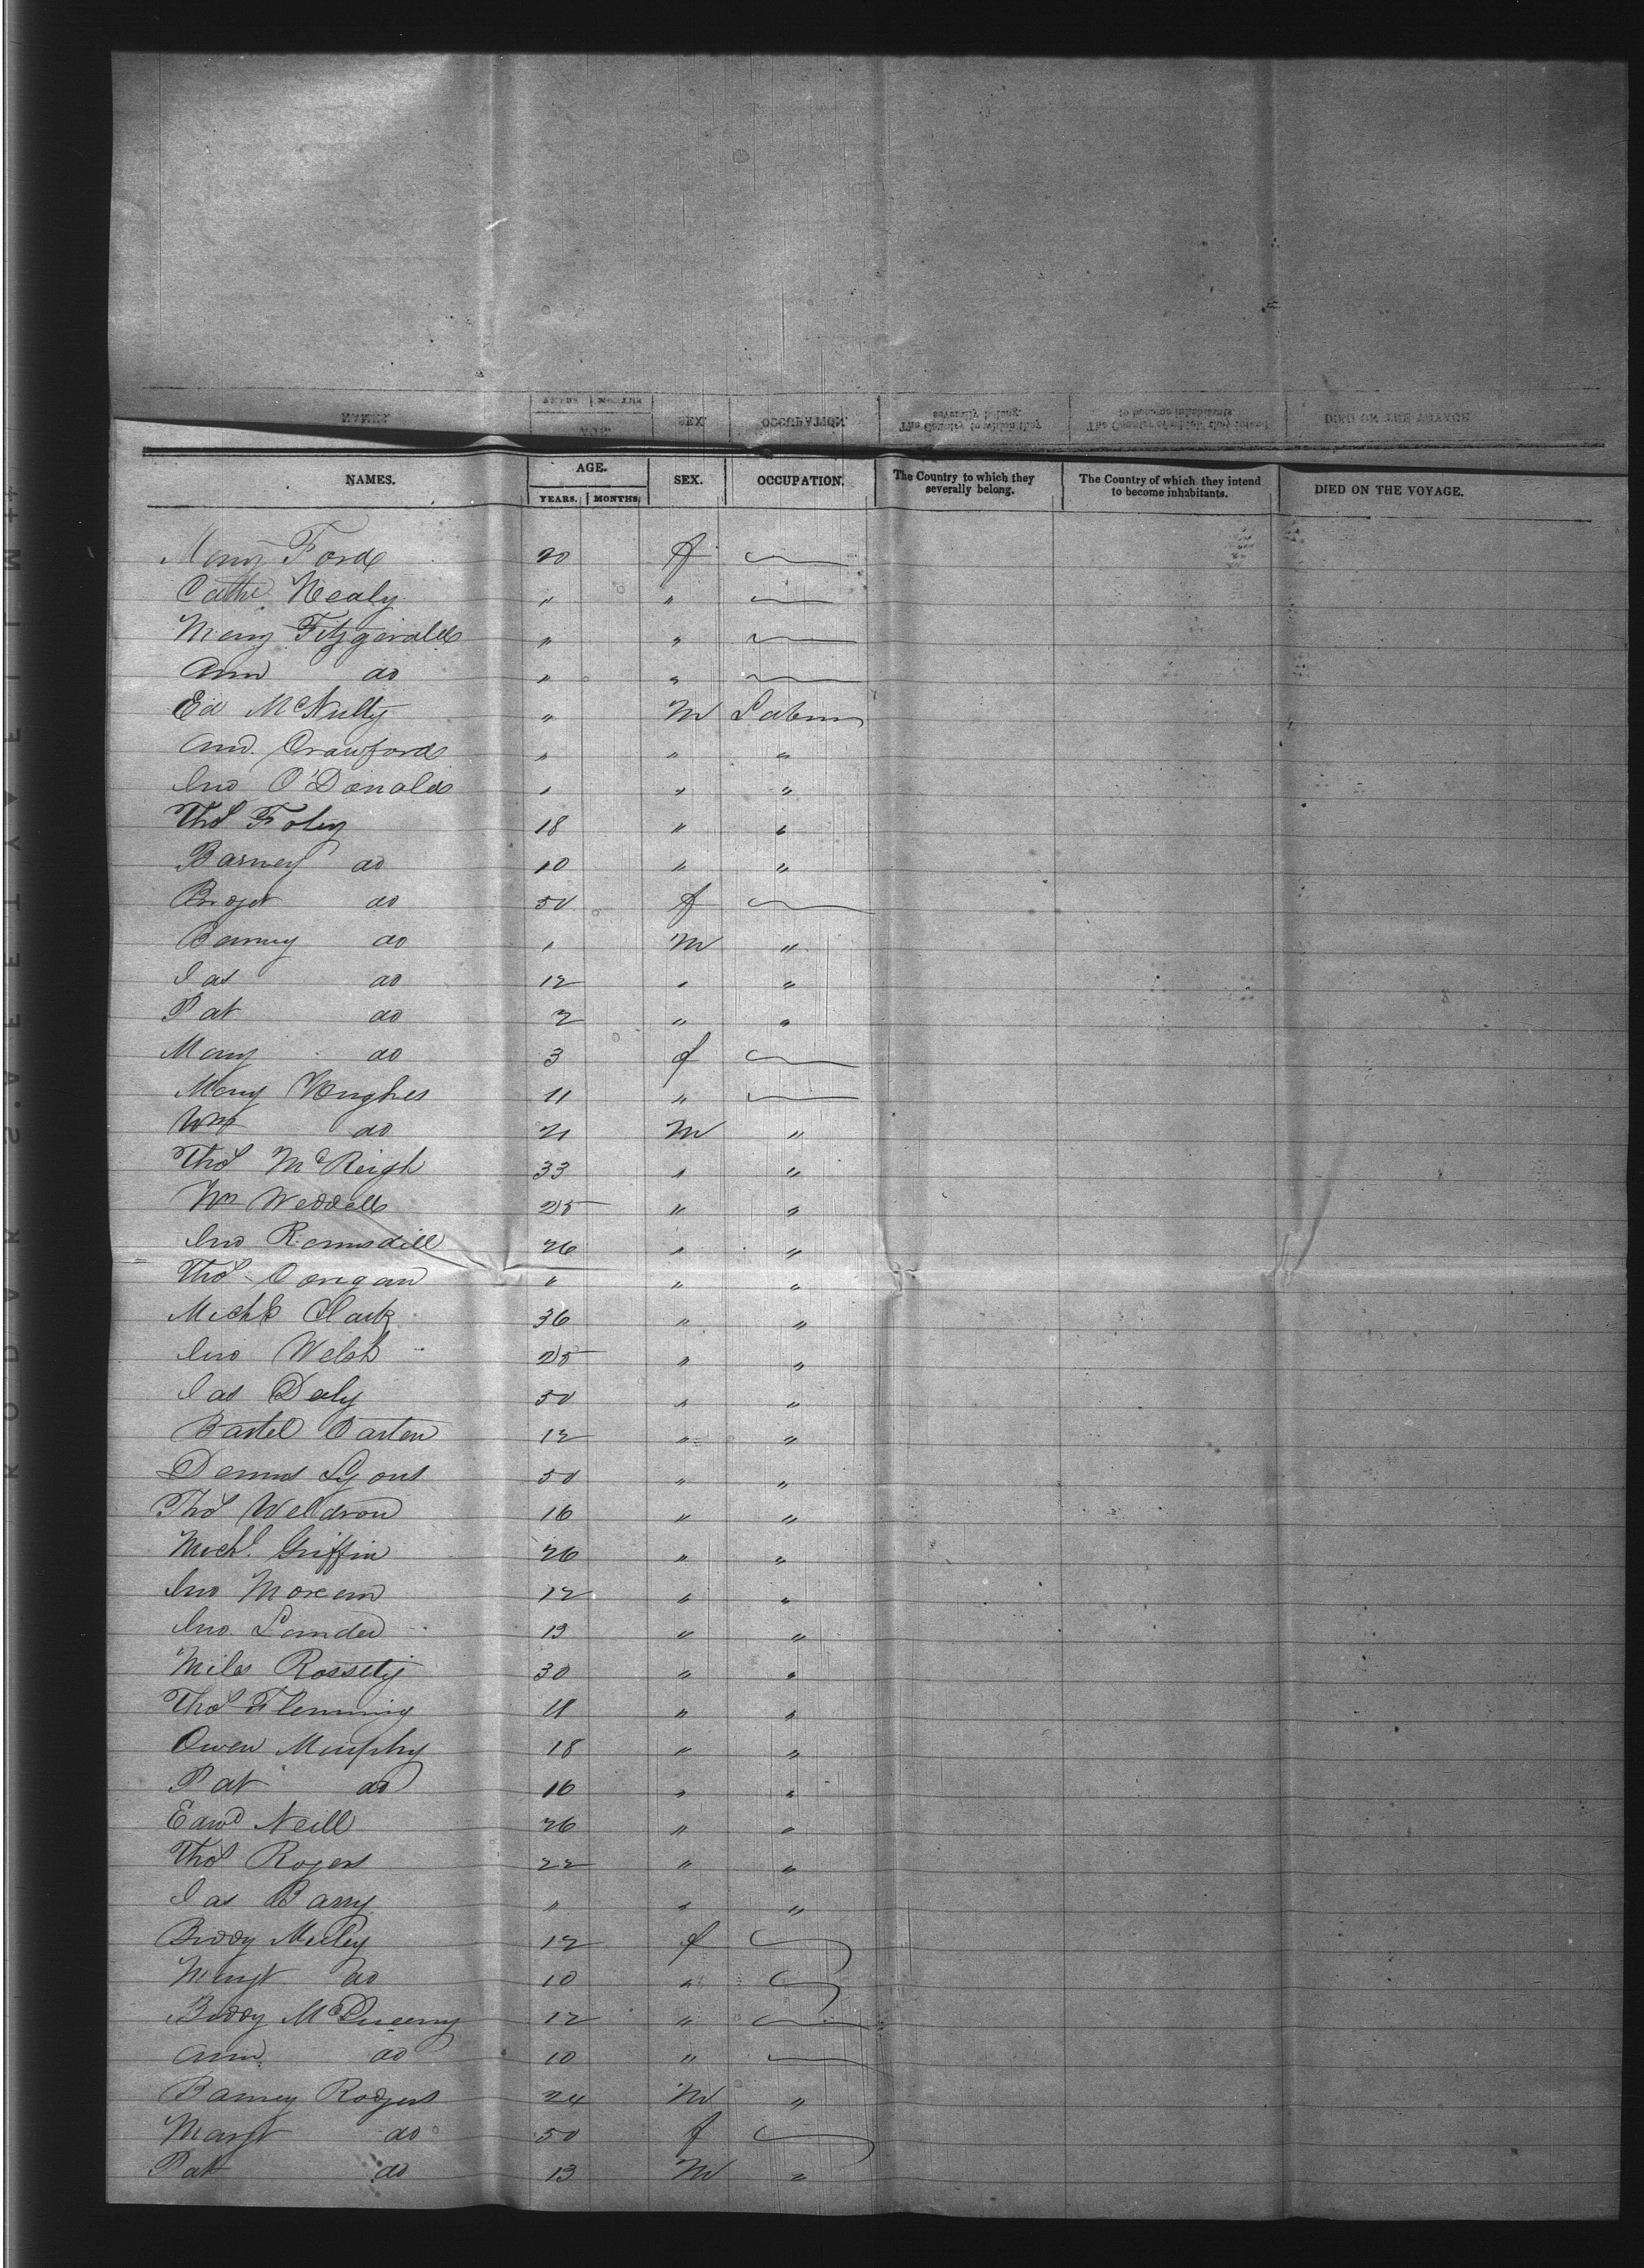 NAMES. AGE. SEX. OCCUPATION. The Country to which they severally belong. The Country of which they intend to become inhabitants. DIED ON THE VOYAGE.
YEARS. MONTHS.
Mary Ford 20 f
Cathe Nealy " "
Mary Fitzgerald " "
Ann do " "
Ed McNulty " M Labour
And. Crawford " " "
Jno O'Donald " " "
Thos Foley 18 " "
Barney do 10 " "
Bridget do 50 f
Barney do 1 M "
Jas do 12 " "
Pat do 2 " "
Mary do 3 f
Mary Hughes 11 "
Wm do 21 M "
Thos McReigh 33 " "
Wm Weddell 25 " "
Jno Ramsdill 26 " "
Thos Corigan " " "
Michl Clark 36 " "
Jno Welsh 25 " "
Jas Daly 50 " "
Bartel Carten 12 " "
Dennis Lyons 50 " "
Thos Weldron 16 " "
Michl. Griffin 26 " "
Jno Moream 12 " "
Jno. Lander 13 " "
Miles Rossity 30 " "
Thos Flemming 11 " "
Owen Murphy 18 " "
Pat do 16 " "
Edwd Neill 26 " "
Thos Rogers 22 " "
Jas Barry " " "
Biddy Meeley 12 f
Margt do 10 "
Biddy 12 "
Ann do 10 "
Barney Rodgers 24 M "
Margt do 50 f
Pat do 13 M "